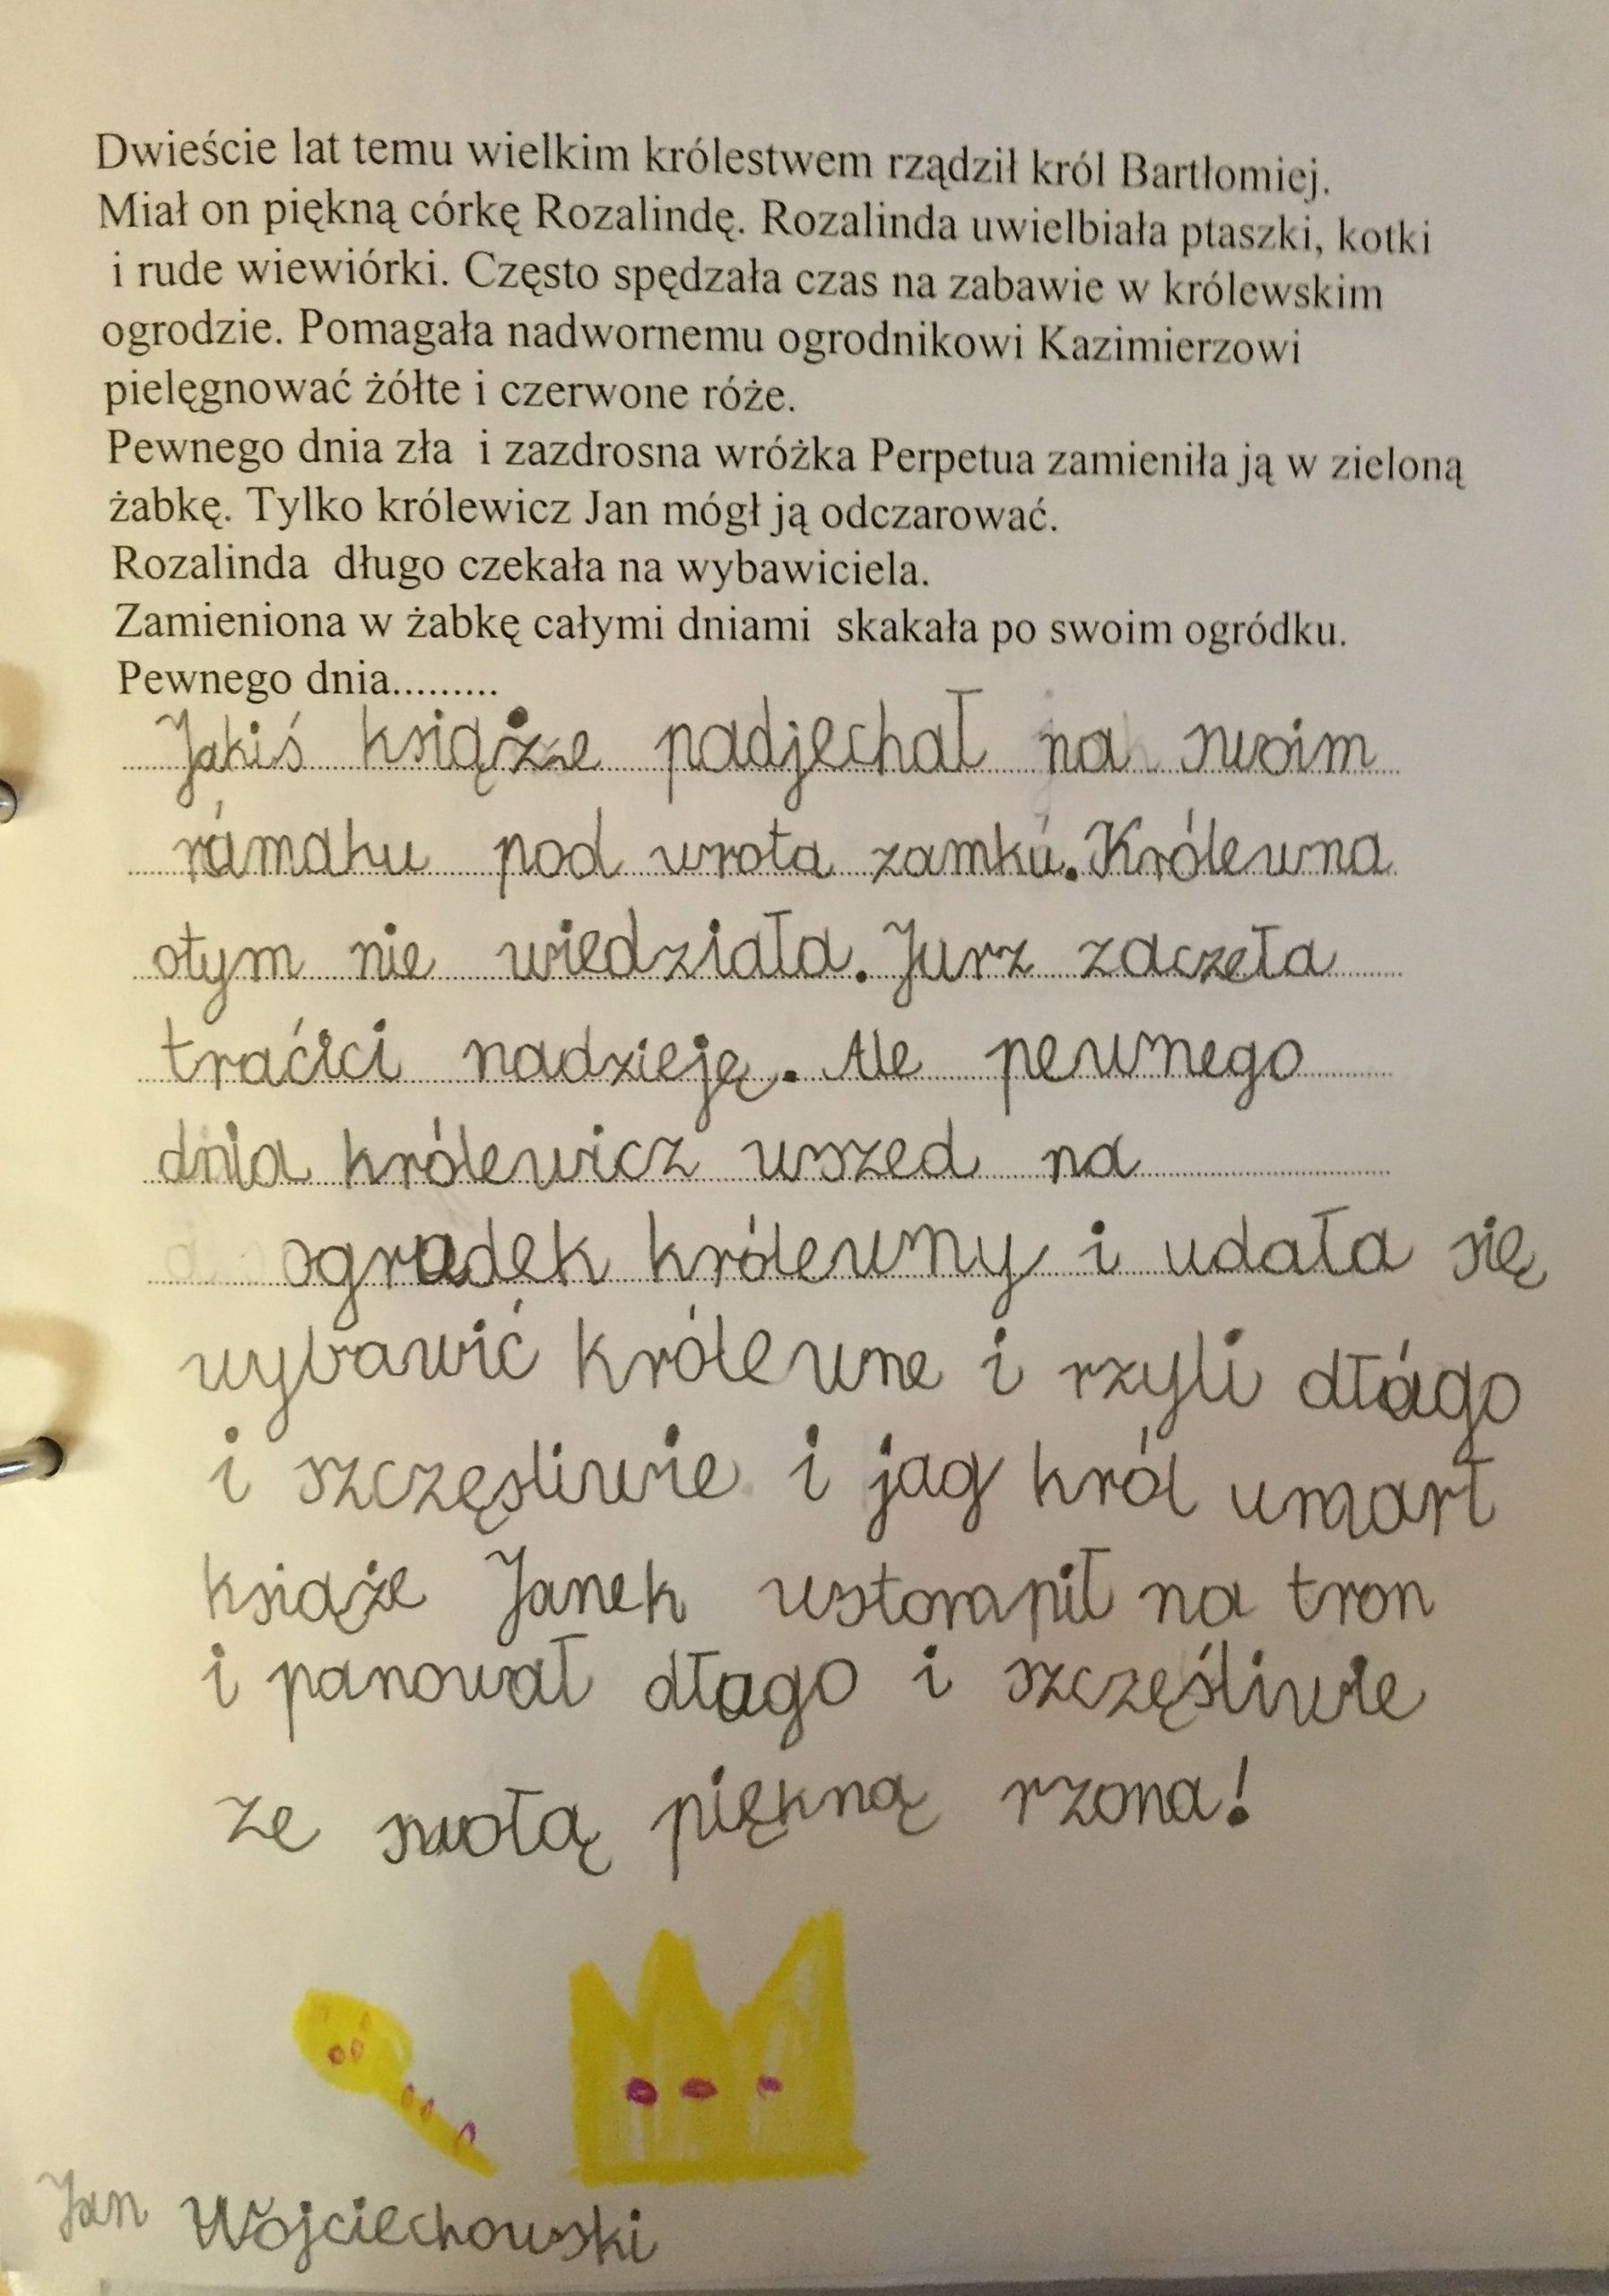 Dwieście lat temu wielkim królestwem rządził król Bartłomiej.
Miał on piękną córkę Rozalindę. Rozalinda uwielbiała ptaszki, kotki
i rude wiewiórki. Często spędzała czas na zabawie w królewskim
ogrodzie. Pomagała nadwornemu ogrodnikowi Kazimierzowi
pielęgnować żółte i czerwone róże.
Pewnego dnia zła i zazdrosna wróżka Perpetua zamieniła ją w zieloną
żabkę. Tylko królewicz Jan mógł ją odczarować.
Rozalinda długo czekała na wybawiciela.
Zamieniona w żabkę całymi dniami skakała po swoim ogródku.
Pewnego dnia.........
Jakiś książe padjechał na swoim
rámaku pod wrota zamkú. Królewna
otym nie wiedziała. Jurz zaczeła
traćici nadzieję. Ale pewnego
dnia królewicz wszed na
ogrudek królewny i udała się
wybawić królewne i rzyli dłágo
i szczęsliwie i jag król umarł
książe Janek wstompił na tron
i panował dłago i szczęśliwie
ze swołą piękną rzona!
Jan Wojciechowski